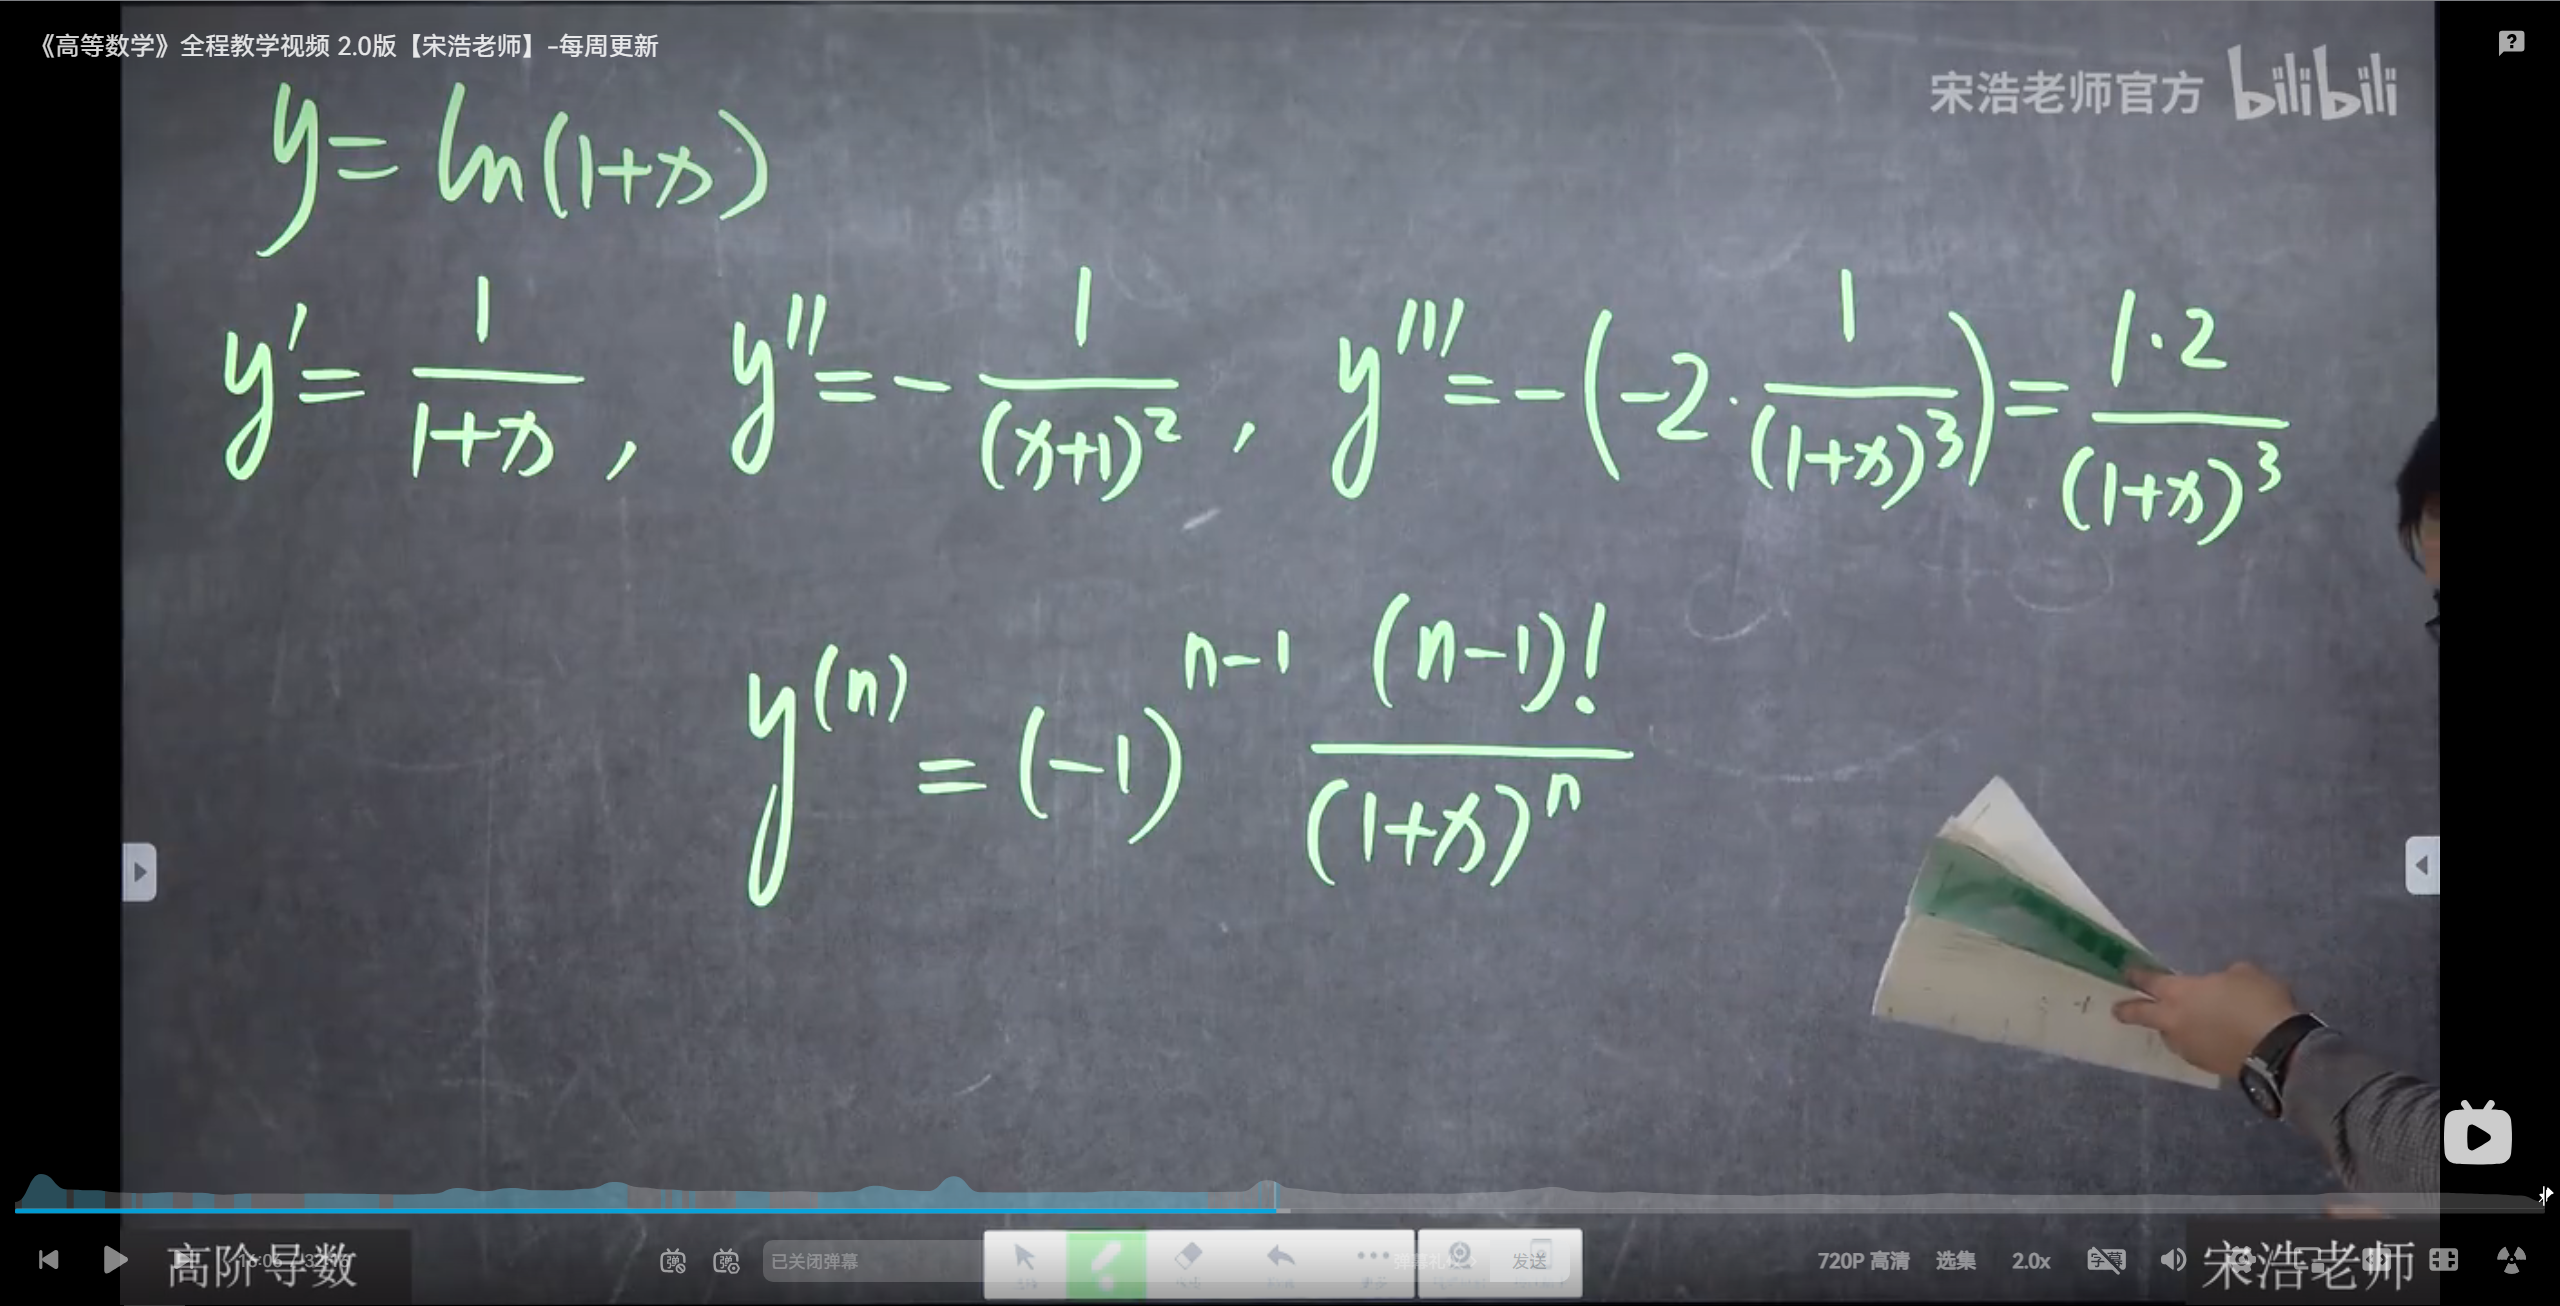 《高等数学》全程教学视频 2.0版【宋浩老师】-每周更新
宋浩老师官方 bilibili
y = ln(1+x)
y' = 1/(1+x) , y'' = - 1/(x+1)² , y''' = -(-2 · 1/(1+x)³) = 1·2/(1+x)³
y⁽ⁿ⁾ = (-1)ⁿ⁻¹ (n-1)!/(1+x)ⁿ
高阶导数
已关闭弹幕
发送
720P 高清
选集
2.0x
宋浩老师